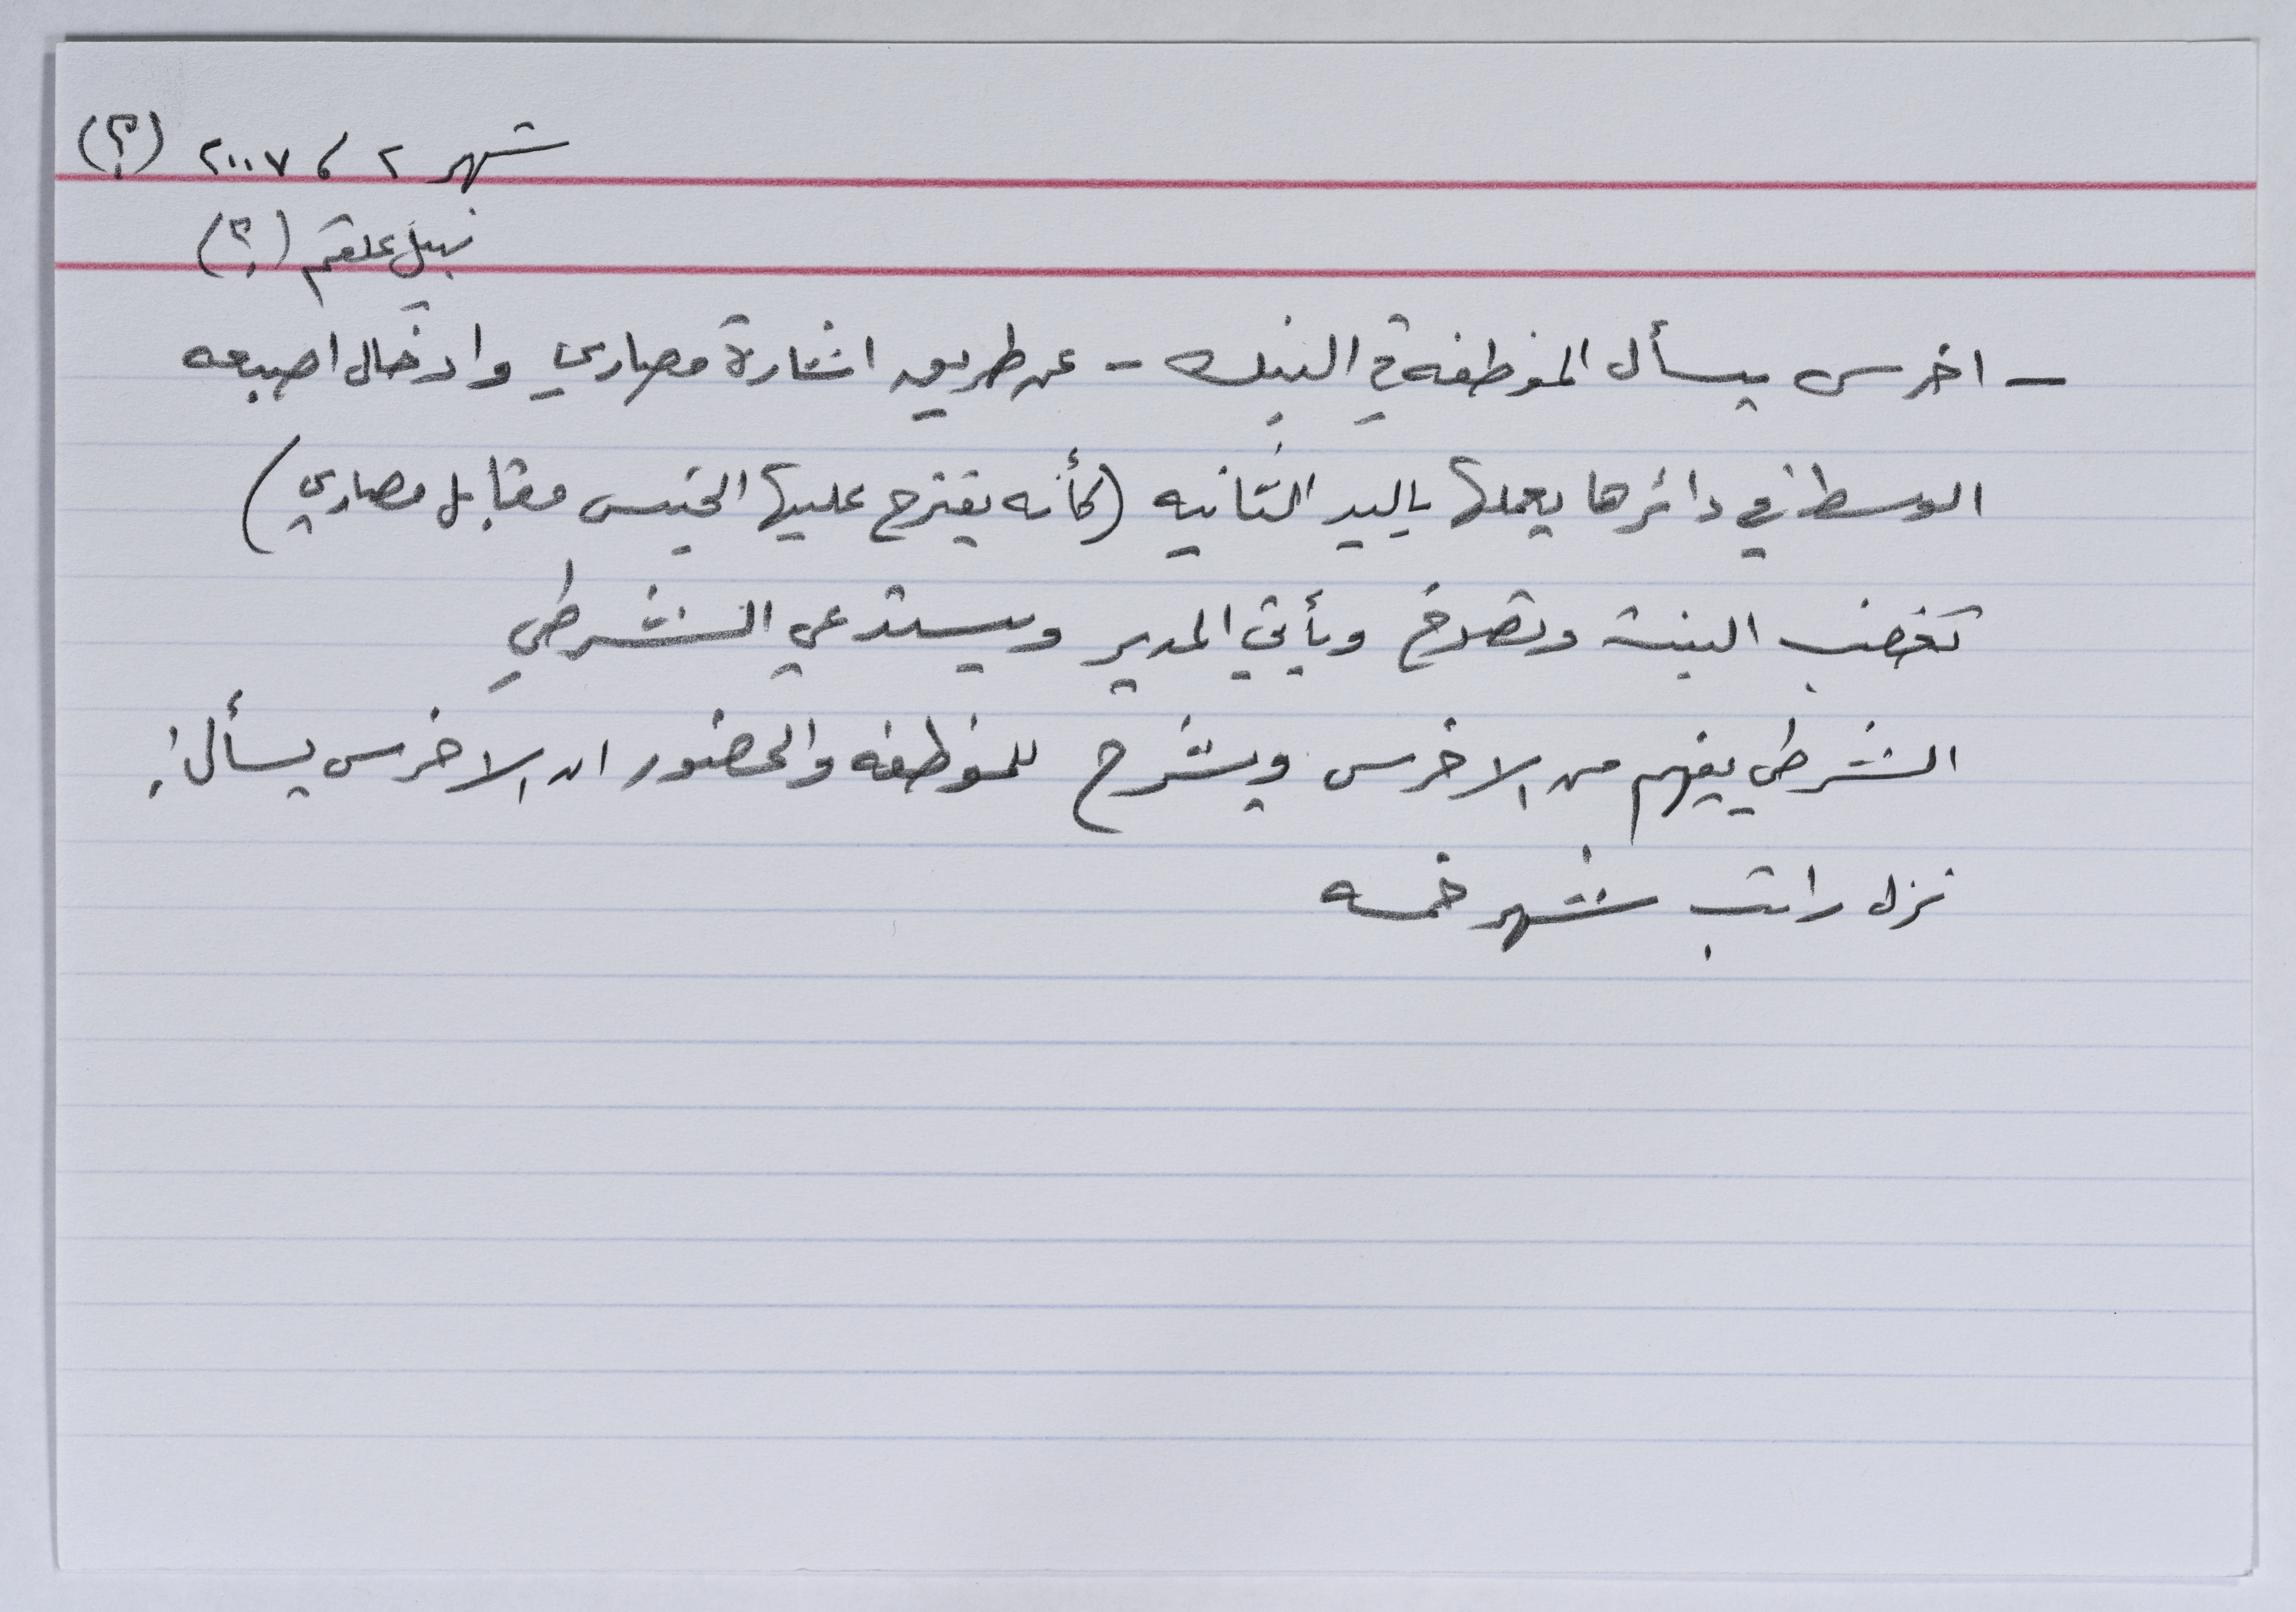 شهر ٢ ، ٢٠٠٧ (؟)
نبيل علقم (؟)
- اخرس يسأل الموظفه في البنك - عن طريق اشارة مصاري وادخال اصبعه
الوسط في دائرها يعملها باليد الثانيه (كأنه يقترح عليها الجنس مقابل مصاري)
تغضب البنت وتصرخ ويأتي المدير ويستدعي الشرطي
الشرطي يفهم من الاخرس ويشرح للموظفه والحضور ان الاخرس يسأل:
نزل راتب شهر خمسه